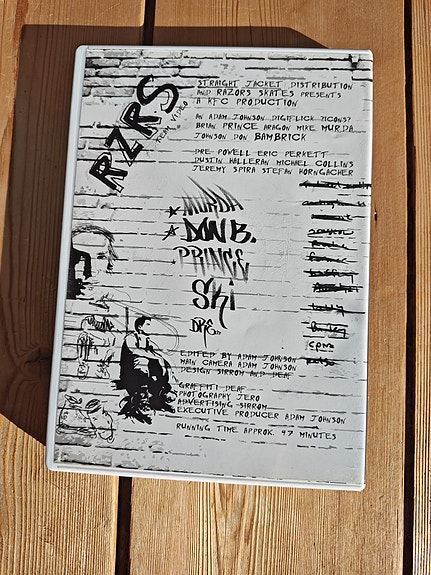 RZRS
TEAM VIDEO
STRAIGHT JACKET DISTRIBUTION
AND RAZORS SKATES PRESENTS
A KFC PRODUCTION
AN ADAM JOHNSON DIGIFLICK ?ICONS?
BRIAN PRINCE ARAGON MIKE MURDA
JOHNSON DON BAMBRICK
DRE POWELL ERIC PERKETT
DUSTIN HALLERAN MICHAEL COLLINS
JEREMY SPIRA STEFAN HORNGACHER
MURDA
DON B.
PRINCE
SKI
DRE
EDITED BY ADAM JOHNSON
MAIN CAMERA ADAM JOHNSON
DESIGN SIRROM AND DEAF
GRAFFITI DEAF
PHOTOGRAPHY JERO
ADVERTISING SIRROM
EXECUTIVE PRODUCER ADAM JOHNSON
RUNNING TIME APPROX. 47 MINUTES